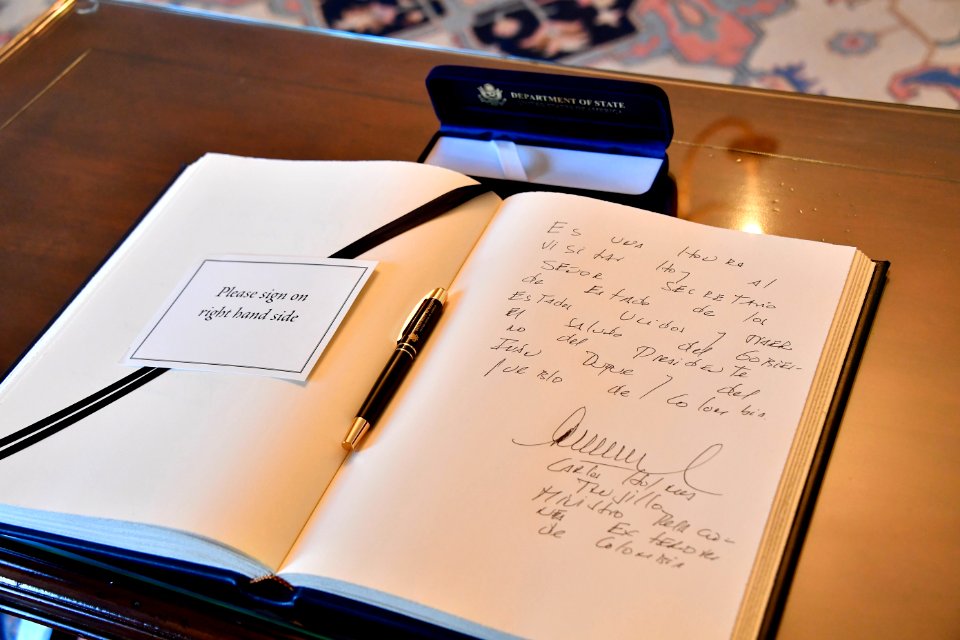 DEPARTMENT OF STATE
UNITED STATES OF AMERICA
Please sign on
right hand side
ES UNA HONRA
VISITAR HOY Al
SEÑOR SECRETARIO
de Estado de los
ESTADOS UNIDOS y TRAER
El saludo del GOBIER-
NO del PRESIDENTE
IVÁN DUQUE y del
PUEBLO de Colombia
CARlos HOlmes
TRUJILLO
MINISTRO RElACIO-
NES EXTERIORES
de COlOMBIA